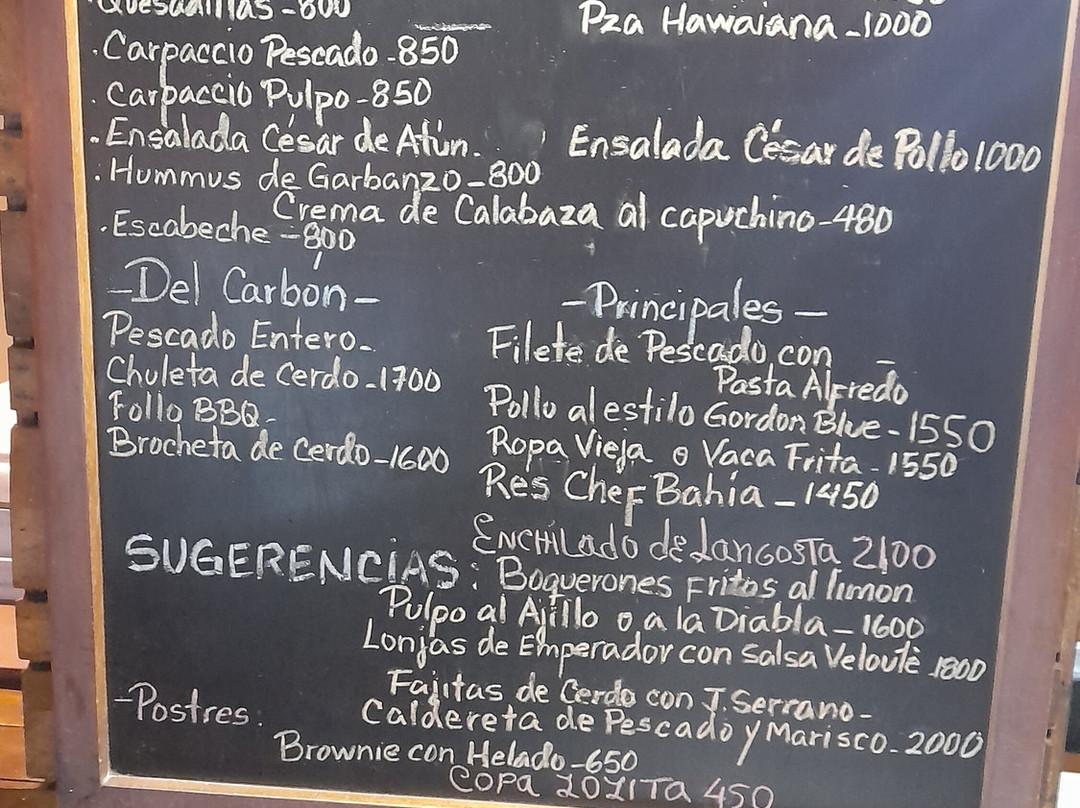 Quesadillas - 800
Pza Hawaiana - 1000
. Carpaccio Pescado - 850
. Carpaccio Pulpo - 850
. Ensalada César de Atún -
Ensalada César de Pollo 1000
. Hummus de Garbanzo - 800
Crema de Calabaza al capuchino - 480
. Escabeche - 800
- Del Carbón -
Pescado Entero -
Chuleta de Cerdo - 1700
Pollo BBQ -
Brocheta de Cerdo - 1600
- Principales -
Filete de Pescado con -
Pasta Alfredo
Pollo al estilo Gordon Blue - 1550
Ropa Vieja o Vaca Frita - 1550
Res Chef Bahía - 1450
Enchilado de Langosta 2100
SUGERENCIAS : Boquerones Fritos al limon
Pulpo al Ajillo o a la Diabla - 1600
Lonjas de Emperador con Salsa Veloutè 1800
Fajitas de Cerdo con J. Serrano -
Caldereta de Pescado y Marisco - 2000
- Postres :
Brownie con Helado - 650
COPA LOLITA 450